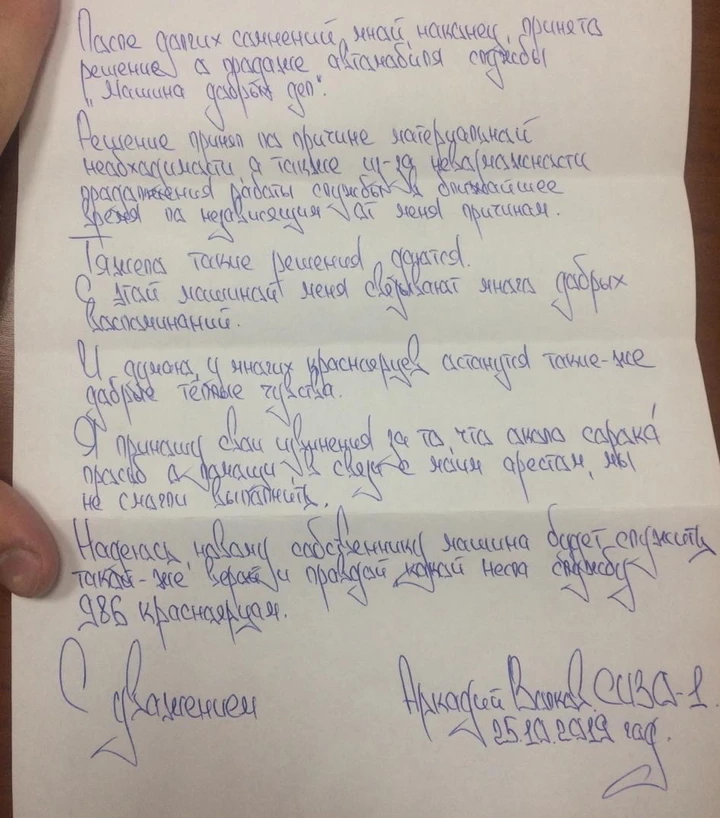 После долгих сомнений, мной, наконец, принято
решение о продаже автомобиля службы
"Машина добрых дел".
Решение принял по причине материальной
необходимости, а также из-за невозможности
продолжения работы службы в ближайшее
время по независящим от меня причинам.
Тяжело такие решения даются.
С этой машиной меня связывают много добрых
воспоминаний.
И думаю, у многих красноярцев останутся такие-же
добрые тёплые чувства.
Я приношу свои извинения за то, что около сорока
просьб о помощи, в связи с моим арестом, мы
не смогли выполнить.
Надеюсь, новому собственнику машина будет служить
такой-же верой и правдой, какой несла службу
986 красноярцам.
С уважением
Аркадий Волков. СИЗО-1.
25.10.2019 год.